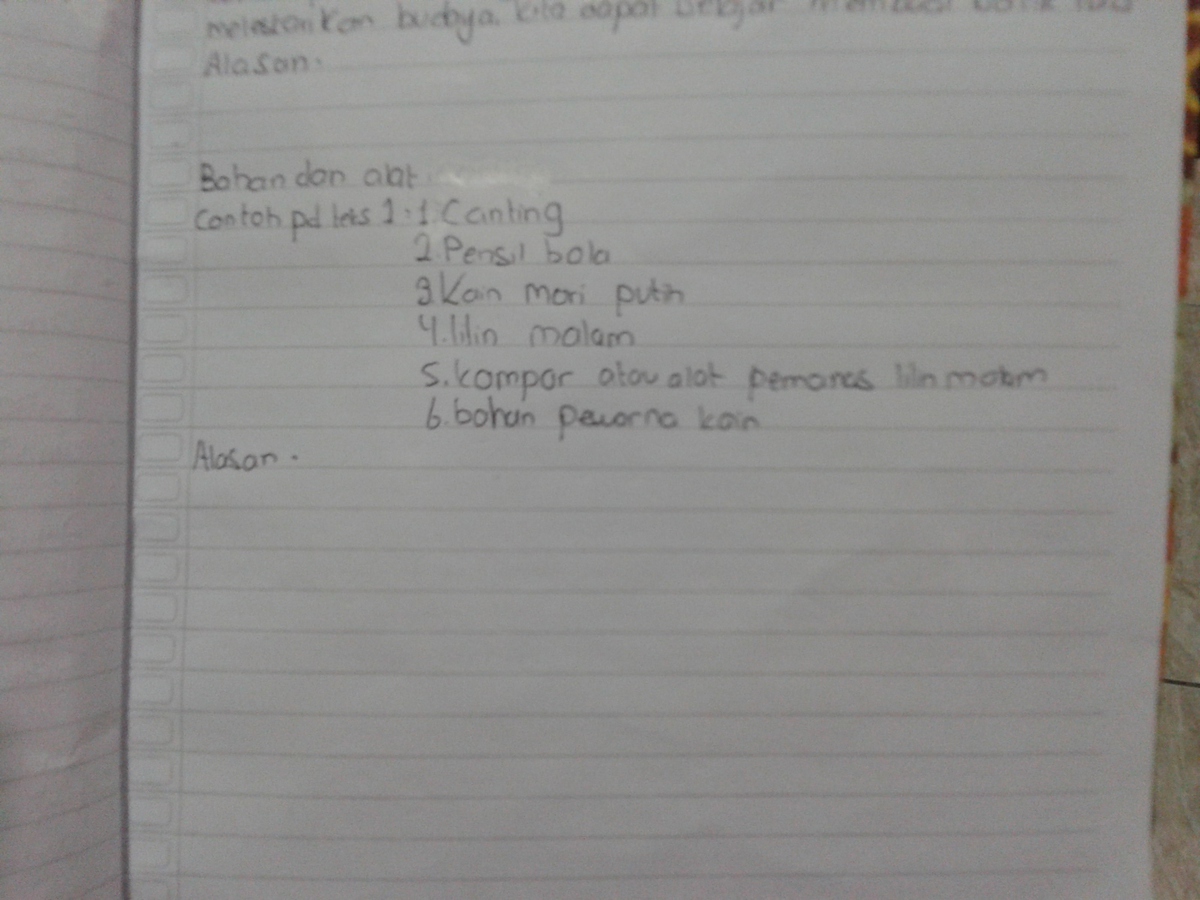 melestarikan budaya. kita dapat belajar membuat batik tulis
Alasan.
Bahan dan alat
Contoh pd teks 1 : 1. Canting
2. Pensil bola
3. Kain mori putih
4. lilin malam
5. kompor atau alat pemanas lilin malam
6. bahan pewarna kain
Alasan.